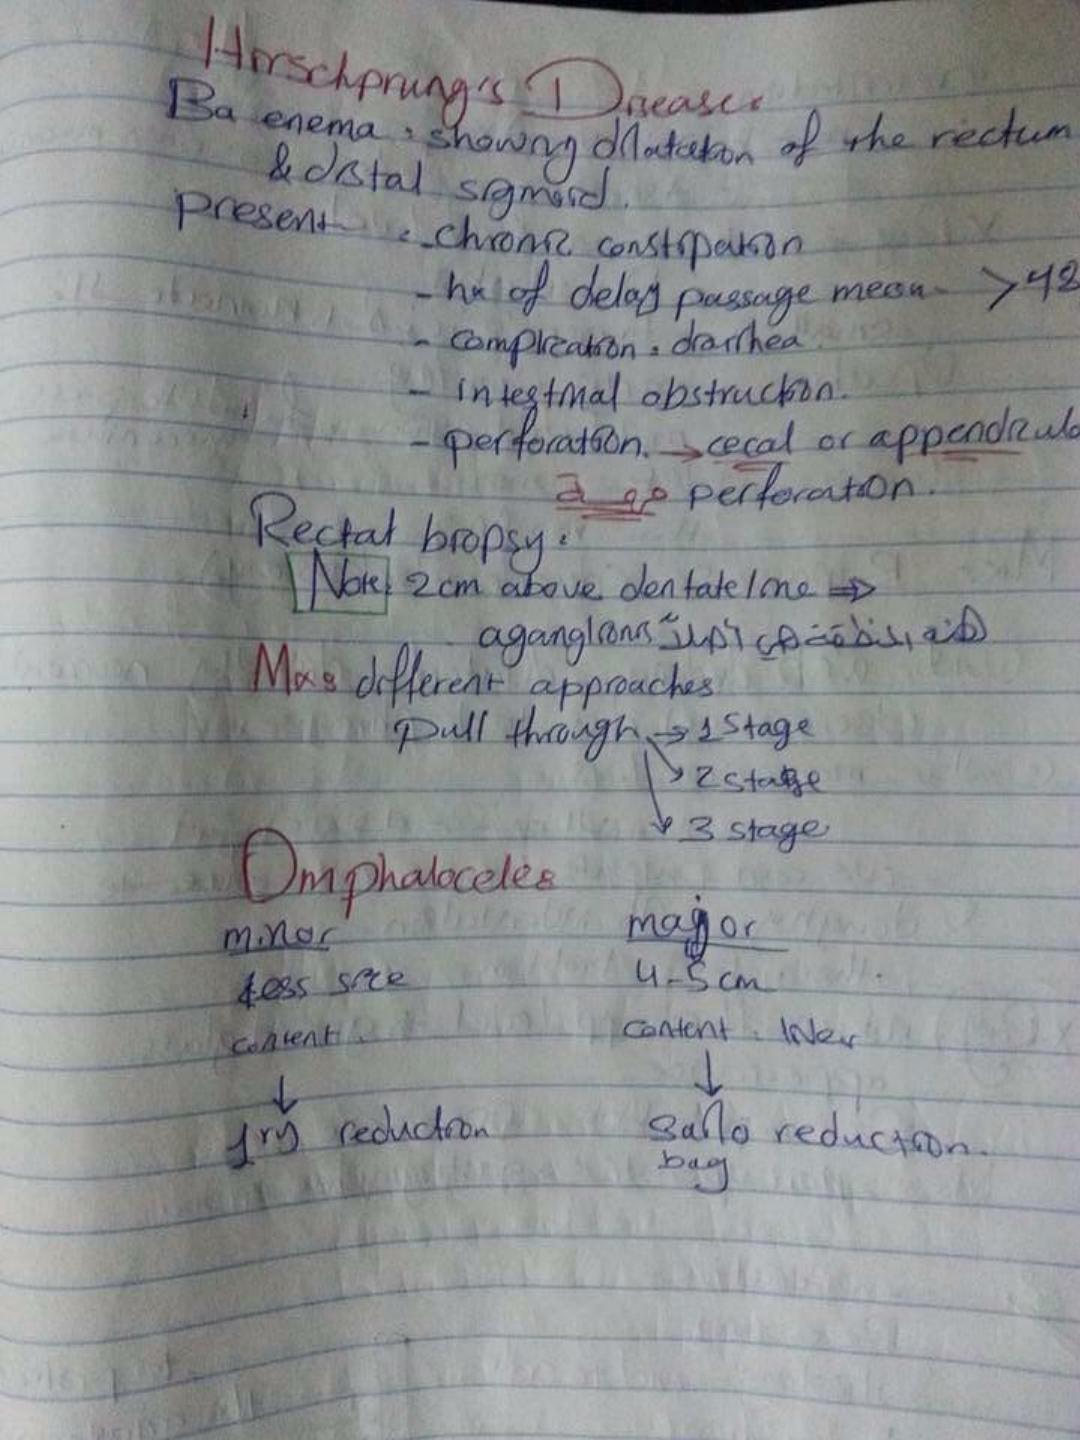 Hirschprung's Disease:
Ba enema: showing dilatation of the rectum
& distal sigmoid.
present: - chronic constipation
- hx of delay passage mecu >48
- complication: diarrhea
- intestinal obstruction.
- perforation. → cecal or appendicula
perforation.
Rectal biopsy:
Note: 2cm above dentate line ⇒
aganglionic هذه المنطقة هي أصلاً
different approaches
Pull through → 1 stage
→ 2 stage
→ 3 stage
Omphaloceles
minor major
less size 4-5cm
content: content: liver
↓ ↓
1ry reduction Sailo reduction.
bag